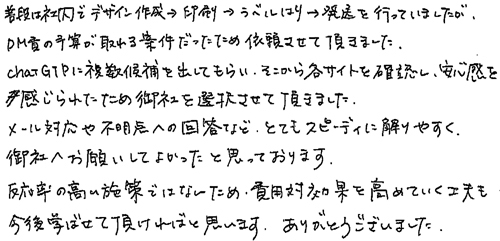 普段は社内でデザイン作成→印刷→ラベルはり→発送を行っていましたが、
DM費の予算が取れる案件だったため依頼させて頂きました。
chatGTPに複数候補を出してもらい、そこから各サイトを確認し、安心感を
感じられたため御社を選択させて頂きました。
メール対応や不明点への回答など、とてもスピーディに解りやすく、
御社へお願いしてよかったと思っております。
反応率の高い施策ではないため、費用対効果を高めていく工夫も
今後学ばせて頂ければと思います。ありがとうございました。